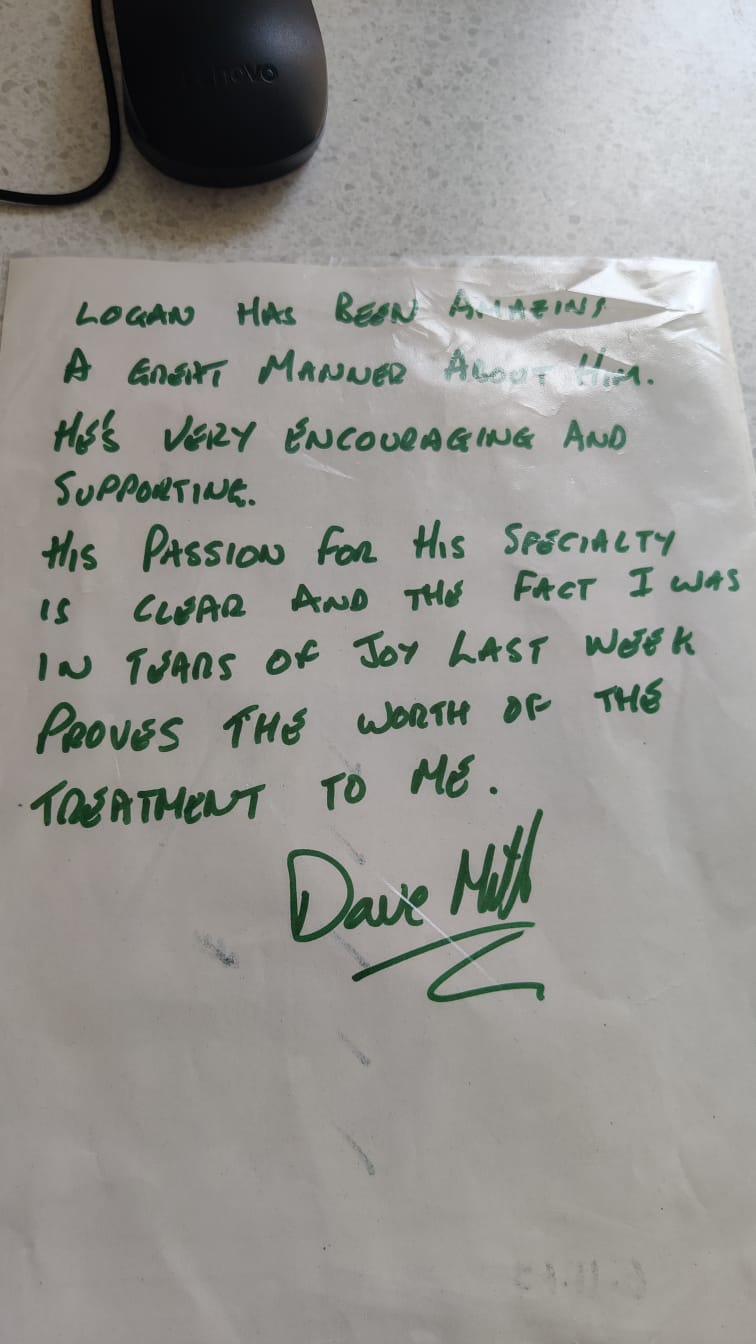 Lenovo
LOGAN HAS BEEN AMAZING
A GREAT MANNER ABOUT HIM.
HE'S VERY ENCOURAGING AND
SUPPORTING.
HIS PASSION FOR HIS SPECIALTY
IS CLEAR AND THE FACT I WAS
IN TEARS OF JOY LAST WEEK
PROVES THE WORTH OF THE
TREATMENT TO ME.
Dave